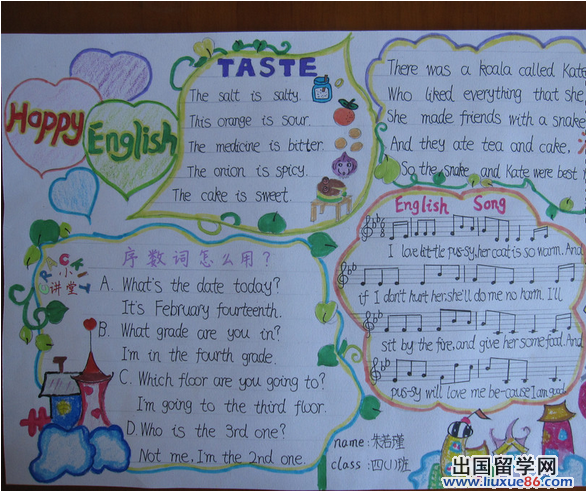 Happy
English
TASTE
The salt is salty.
This orange is sour.
The medicine is bitter.
The onion is spicy.
The cake is sweet.
There was a koala called Kate
Who liked everything that she
She made friends with a snake
And they ate tea and cake,
So the snake and Kate were best
English Song
I love little pus-sy, her coat is so warm. And
if I don't hurt her, she'll do me no harm. I'll
sit by the fire, and give her some food. And
pus-sy will love me be-cause I am good.
小
讲堂
序数词怎么用?
A. What's the date today?
It's February fourteenth.
B. What grade are you in?
I'm in the fourth grade.
C. Which floor are you going to?
I'm going to the third floor.
D. Who is the 3rd one?
Not me, I'm the 2nd one.
name: 朱若瑾
class: 四(1)班
出国留学网
www.liuxue86.com